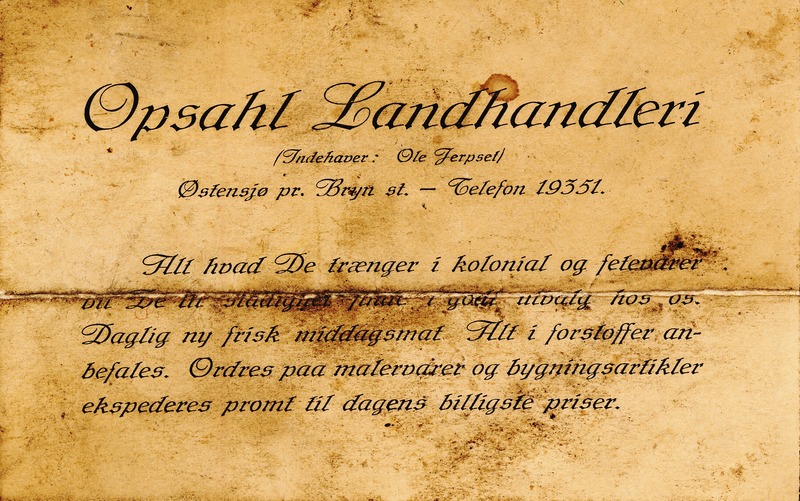 Opsahl Landhandleri
(Indehaver: Ole Jerpset)
Østensjø pr. Bryn st. — Telefon 19351.
Alt hvad De trænger i kolonial og fetevarer
vil De til stadighet finde i godt utvalg hos os.
Daglig ny frisk middagsmat Alt i forstoffer an-
befales. Ordres paa malervarer og bygningsartikler
ekspederes promt til dagens billigste priser.